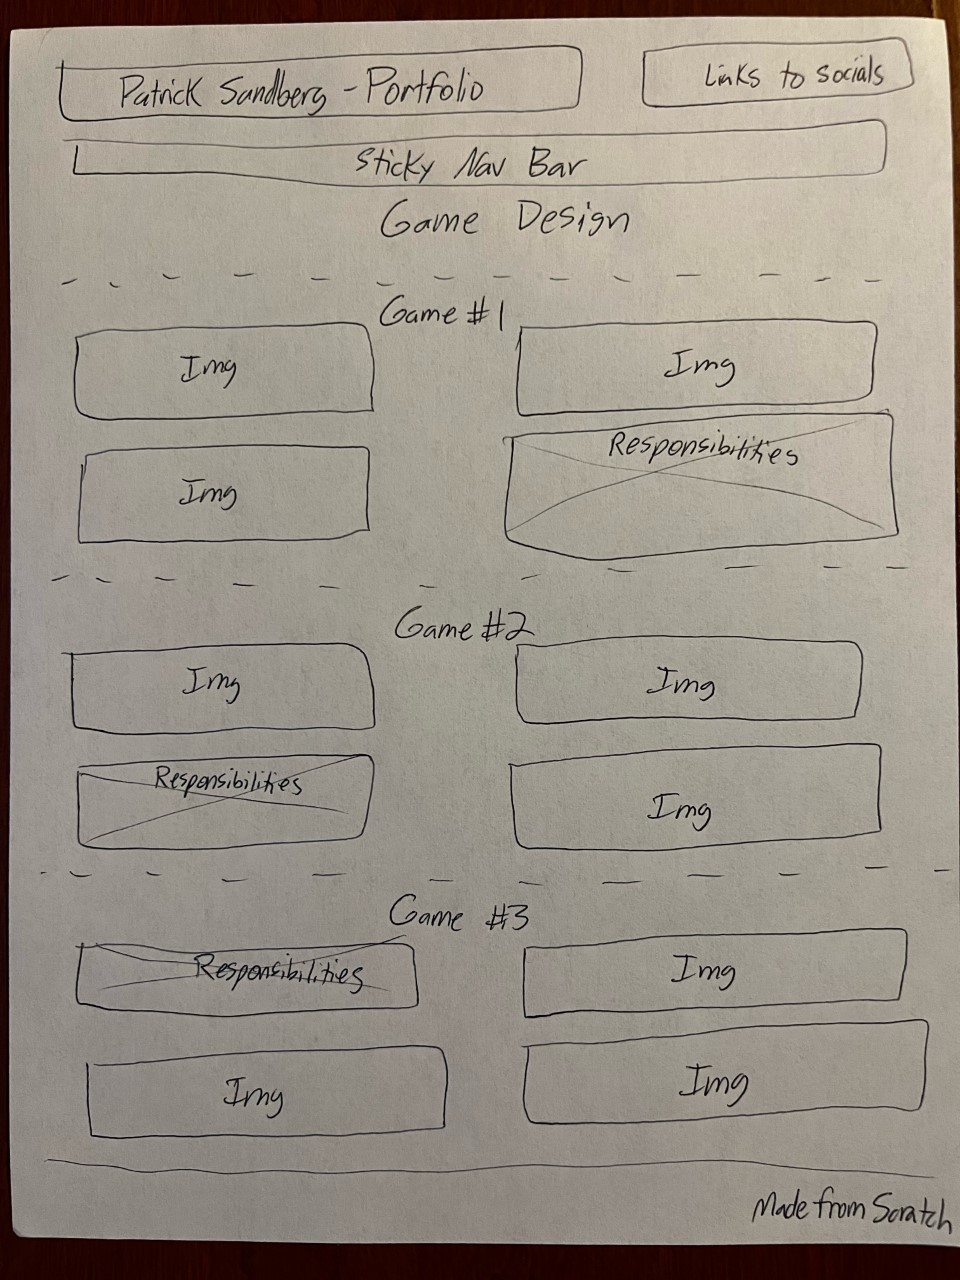 Patrick Sandberg - Portfolio
Links to socials
Sticky Nav Bar
Game Design
Game #1
Img
Img
Img
Responsibilities
Game #2
Img
Img
Responsibilities
Img
Game #3
Responsibilities
Img
Img
Img
Made from Scratch